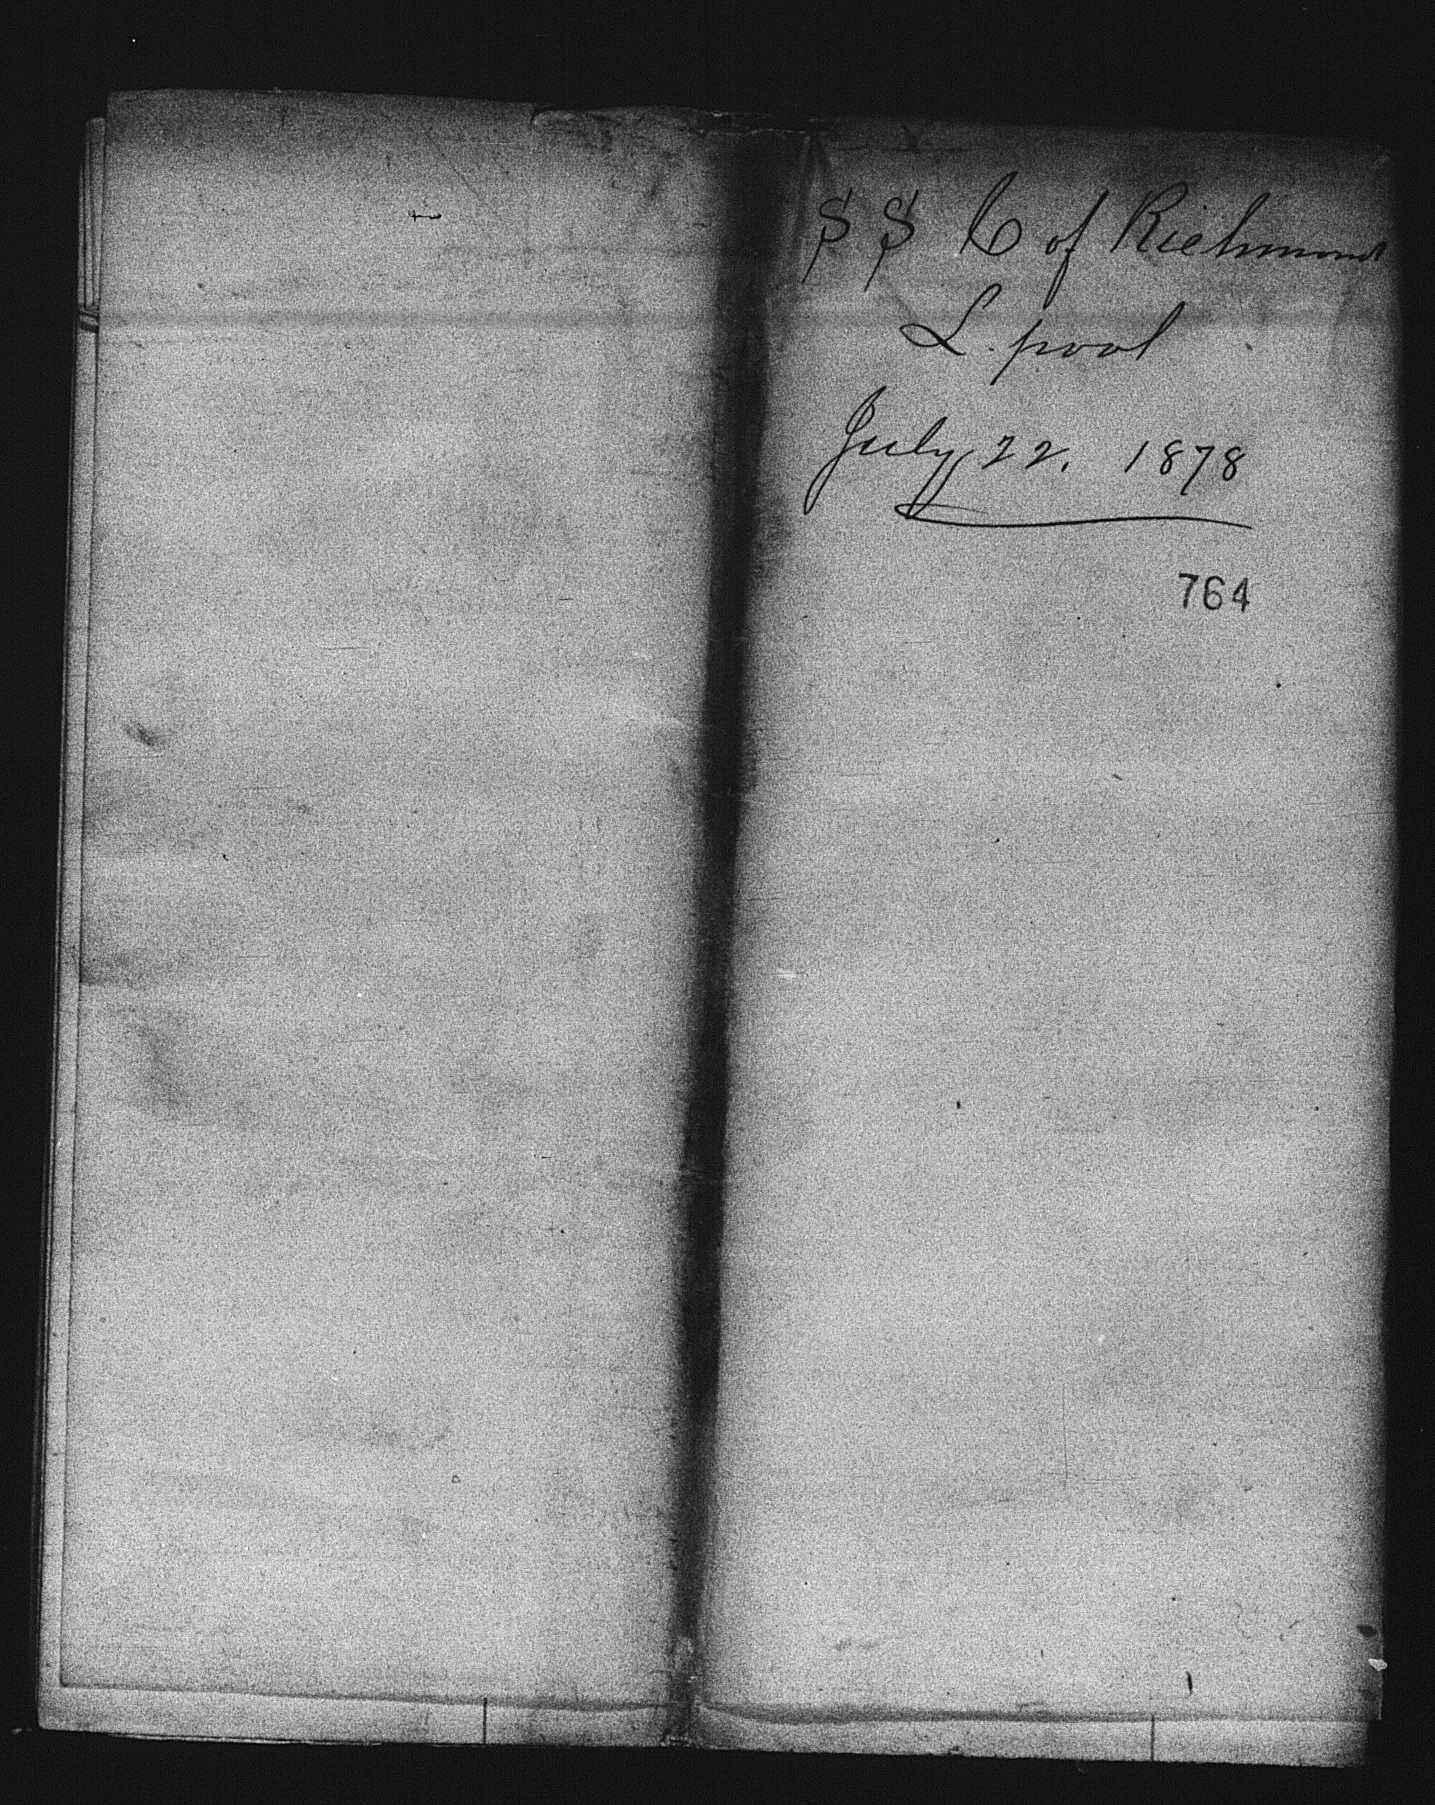 S S C of Richmond
L.pool
July 22. 1878
764